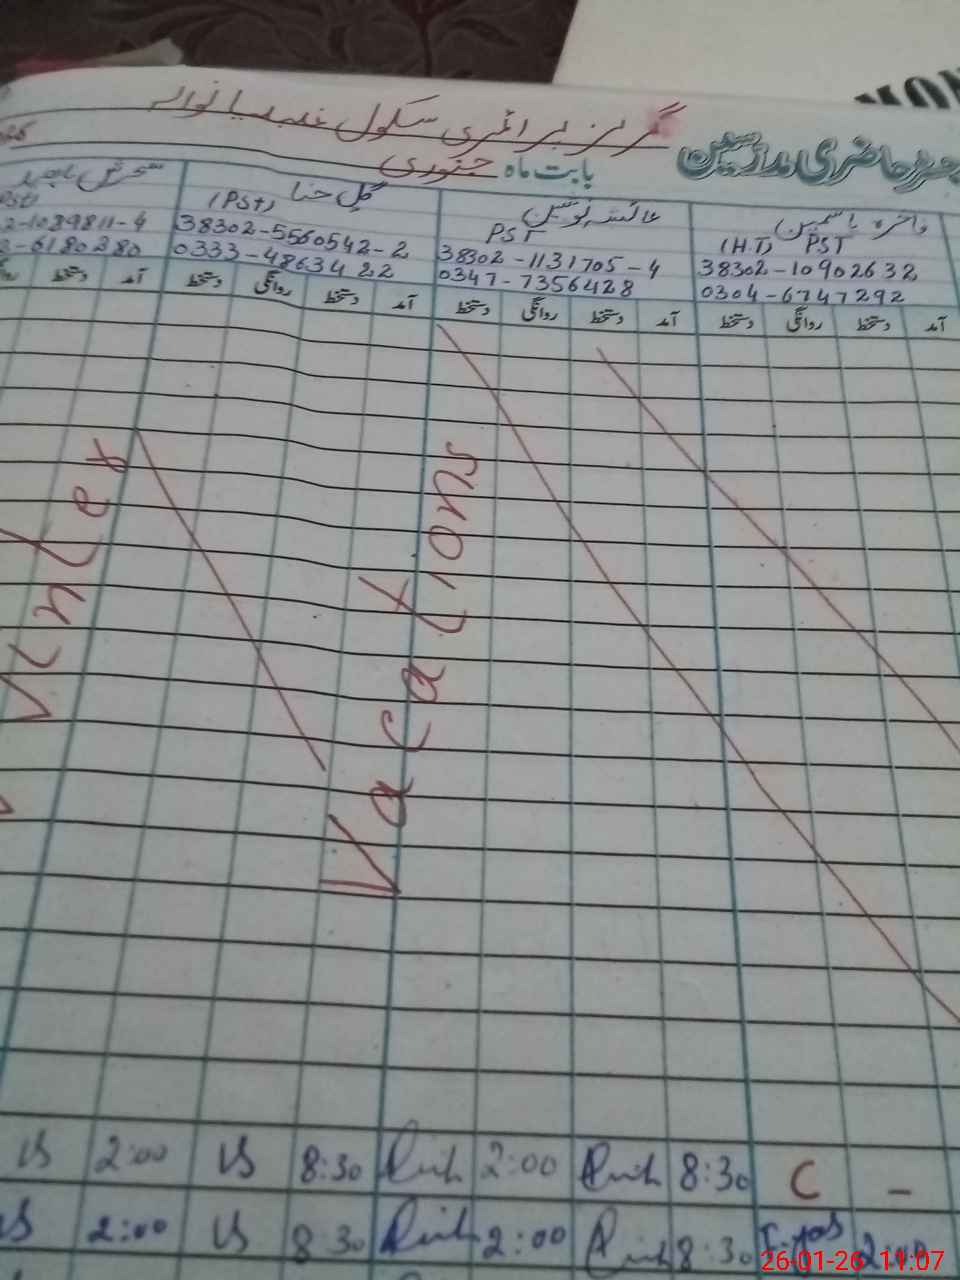 MON
گرلز پرائمری سکول
رجسٹر حاضری مدرسین
بابت ماہ جنوری
فاخرہ یاسمین
(H.T) PST
38302-10902632
0304-6747292
عائشہ نوشین
PST
38302-1131705-4
0347-7356428
گل حنا
(PST)
38302-5560542-2
0333-4863422
سحرش
2-1089811-4
3-6180280
آمد دستخط روانگی دستخط آمد دستخط روانگی دستخط آمد دستخط روانگی دستخط آمد دستخط
Winter
Vacations
2:00 8:30 2:00 8:30 C -
2:00 8:30 2:00 8:30 2:00
26-01-26 11:07